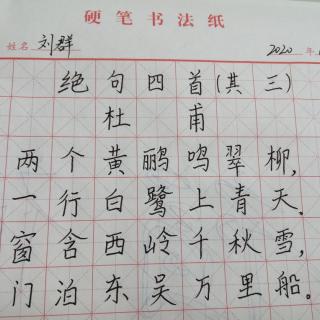 硬笔书法纸
姓名 刘群 2020 年
绝句四首(其三)
杜甫
两个黄鹂鸣翠柳,
一行白鹭上青天.
窗含西岭千秋雪,
门泊东吴万里船。